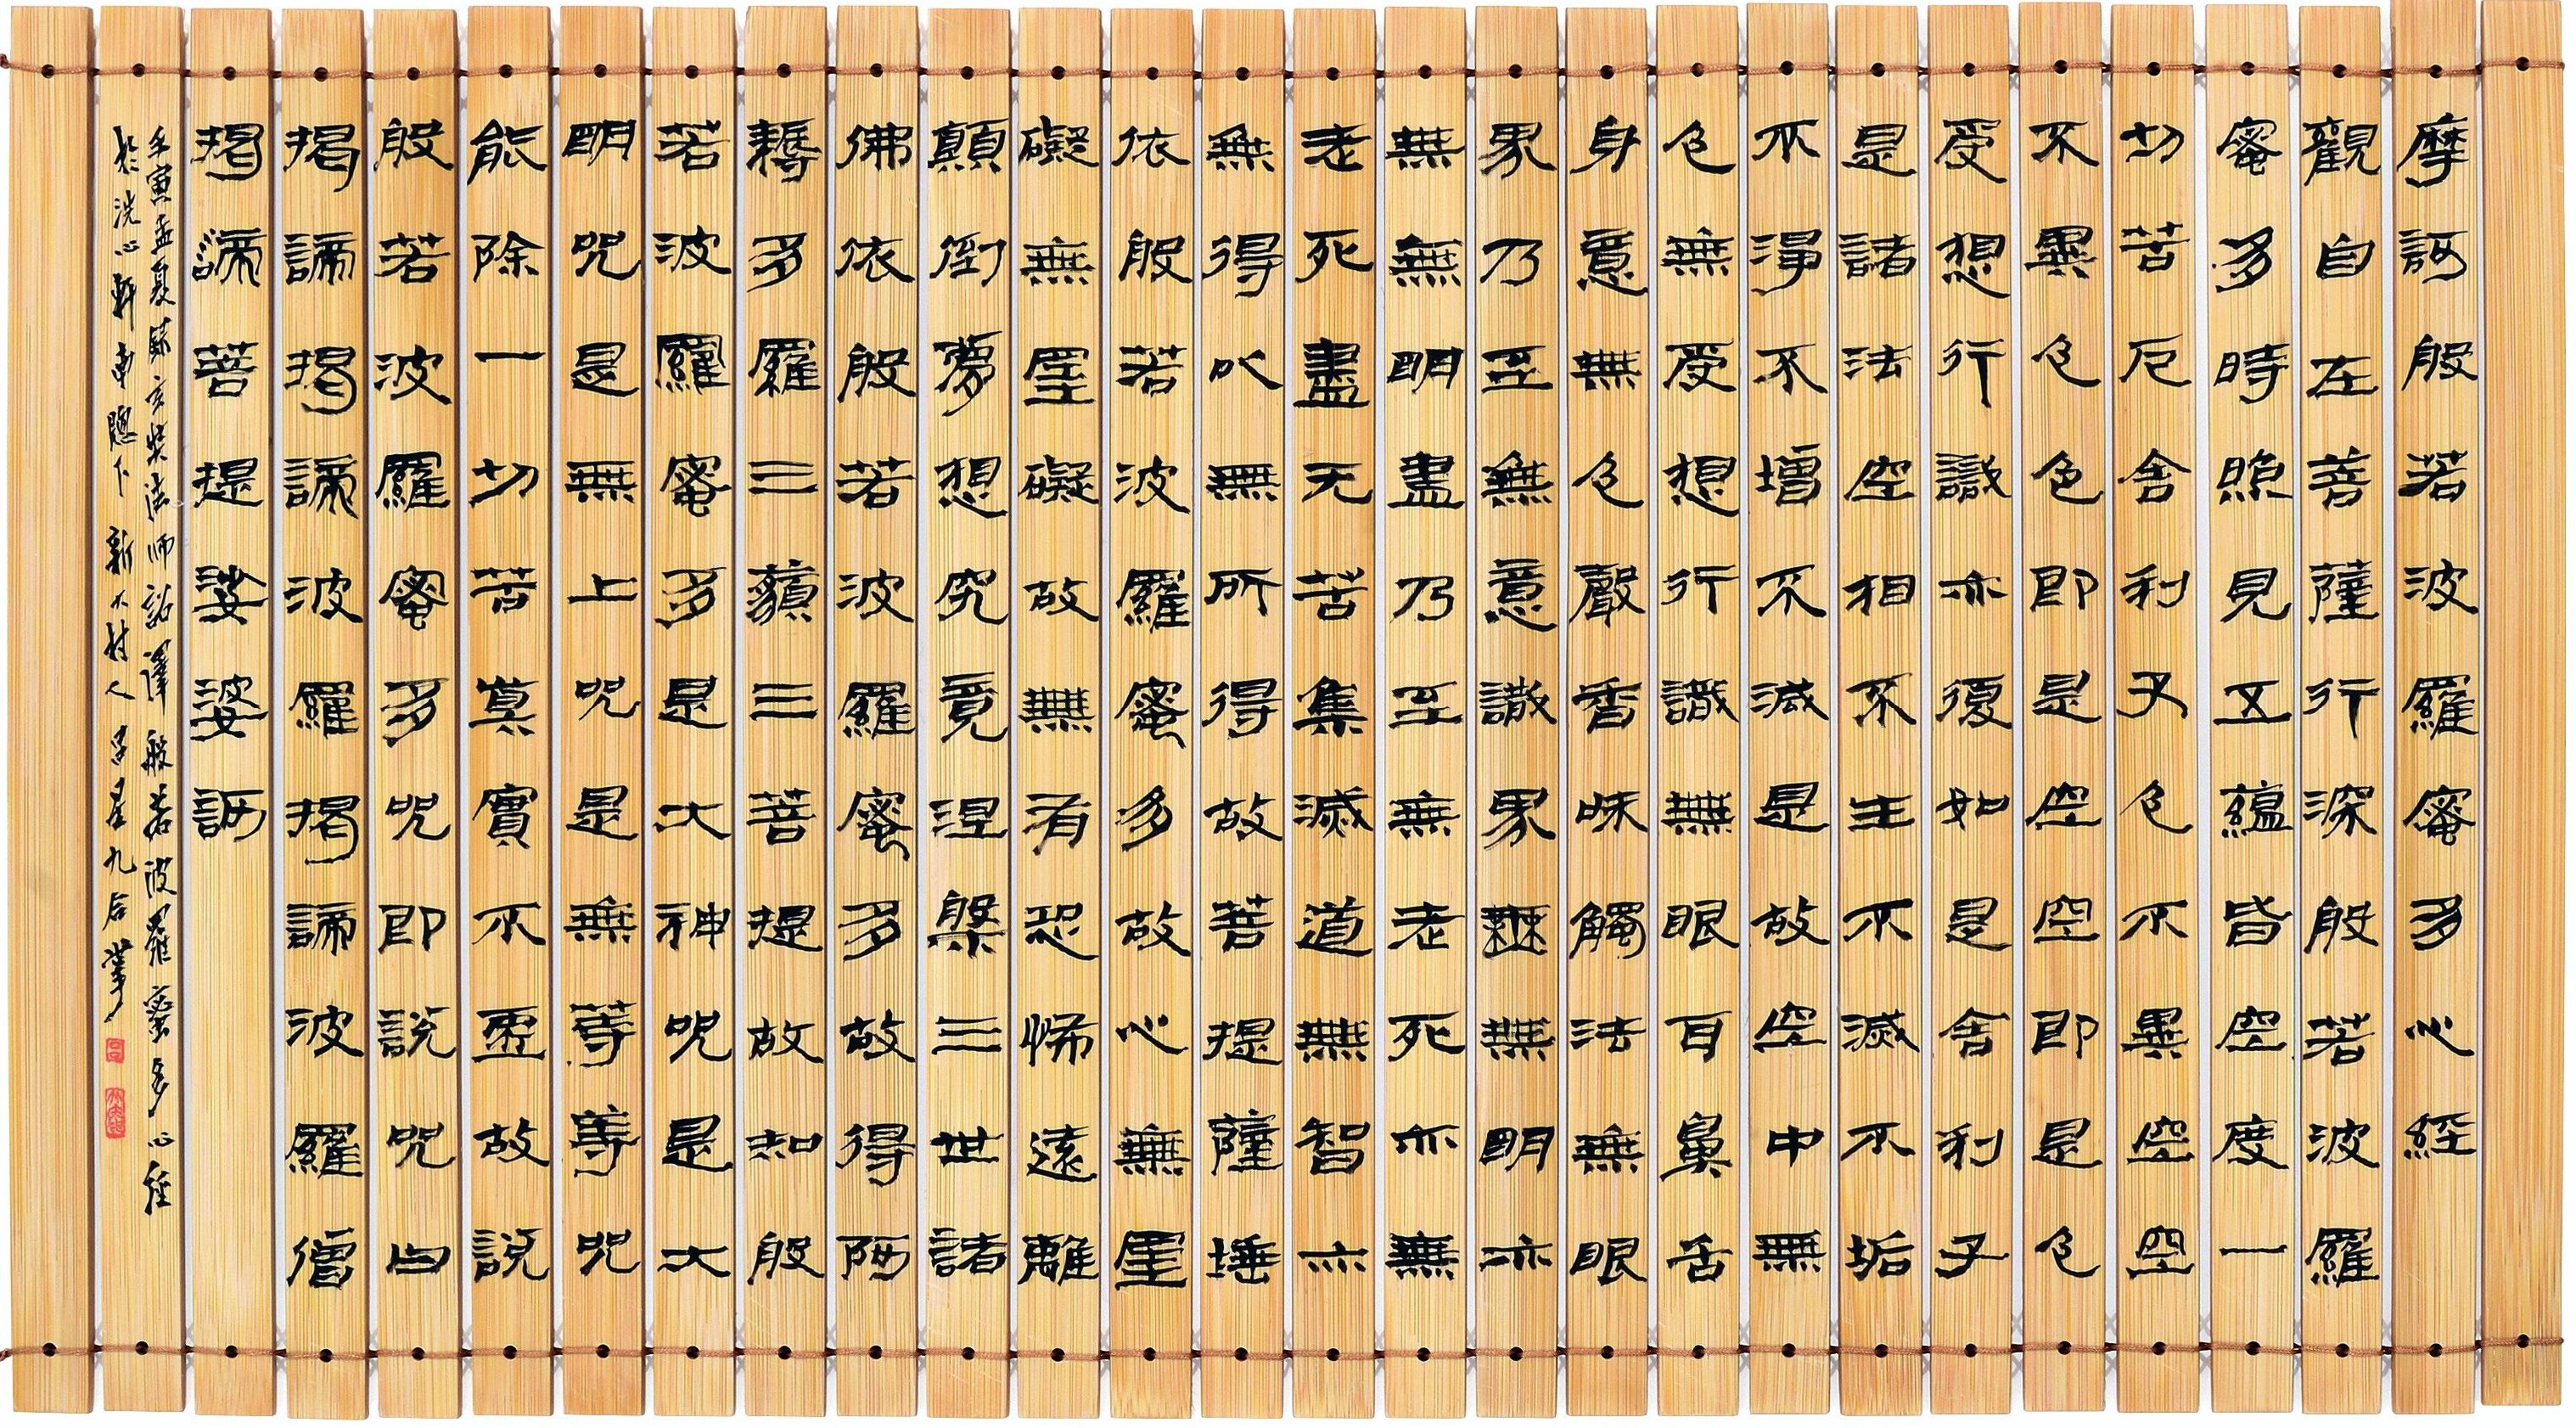 摩訶般若波羅蜜多心經
觀自在菩薩行深般若波羅
蜜多時照見五蘊皆空度一
切苦厄舍利子色不異空空
不異色色即是空空即是色
受想行識亦復如是舍利子
是諸法空相不生不滅不垢
不淨不增不減是故空中無
色無受想行識無眼耳鼻舌
身意無色聲香味觸法無眼
界乃至無意識界無無明亦
無無明盡乃至無老死亦無
老死盡无苦集滅道無智亦
無得以無所得故菩提薩埵
依般若波羅蜜多故心無罣
礙無罣礙故無有恐怖遠離
顛倒夢想究竟涅槃三世諸
佛依般若波羅蜜多故得阿
耨多羅三藐三菩提故知般
若波羅蜜多是大神咒是大
明咒是無上咒是無等等咒
能除一切苦真實不虛故說
般若波羅蜜多咒即說咒曰
揭諦揭諦波羅揭諦波羅僧
揭諦菩提娑婆訶
壬寅孟夏錄玄奘法師詔譯般若波羅蜜多心經
於洗心軒南窗下新大村人呂星九